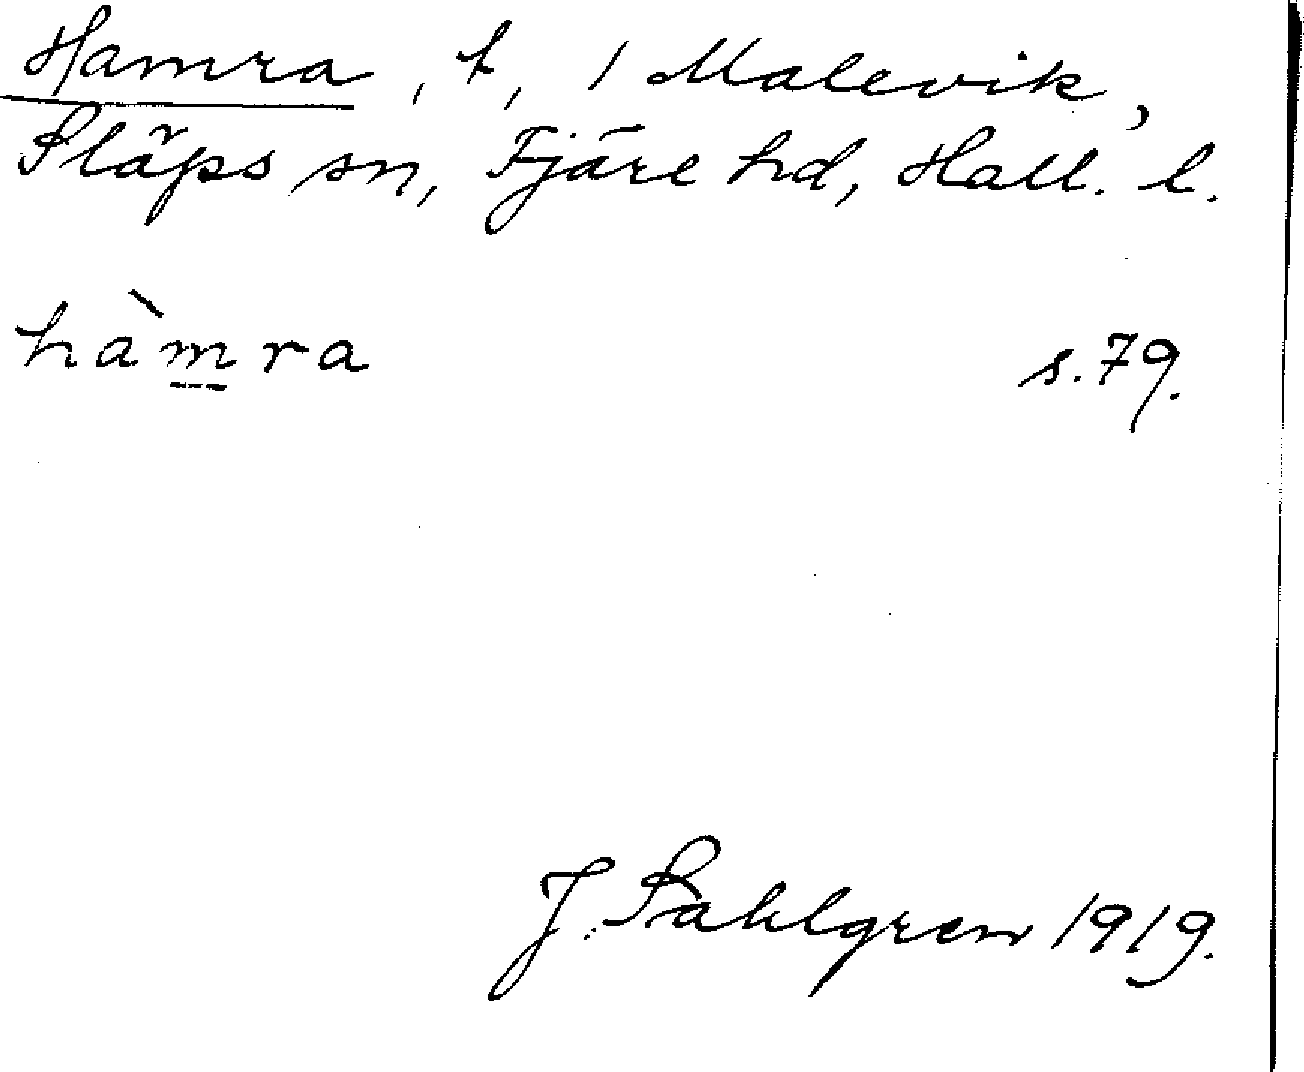 Hamra, t, 1 Malevik,
Släps sn, Fjäre hd, Hall. l.
hàmra s. 79.
J. Sahlgren 1919.